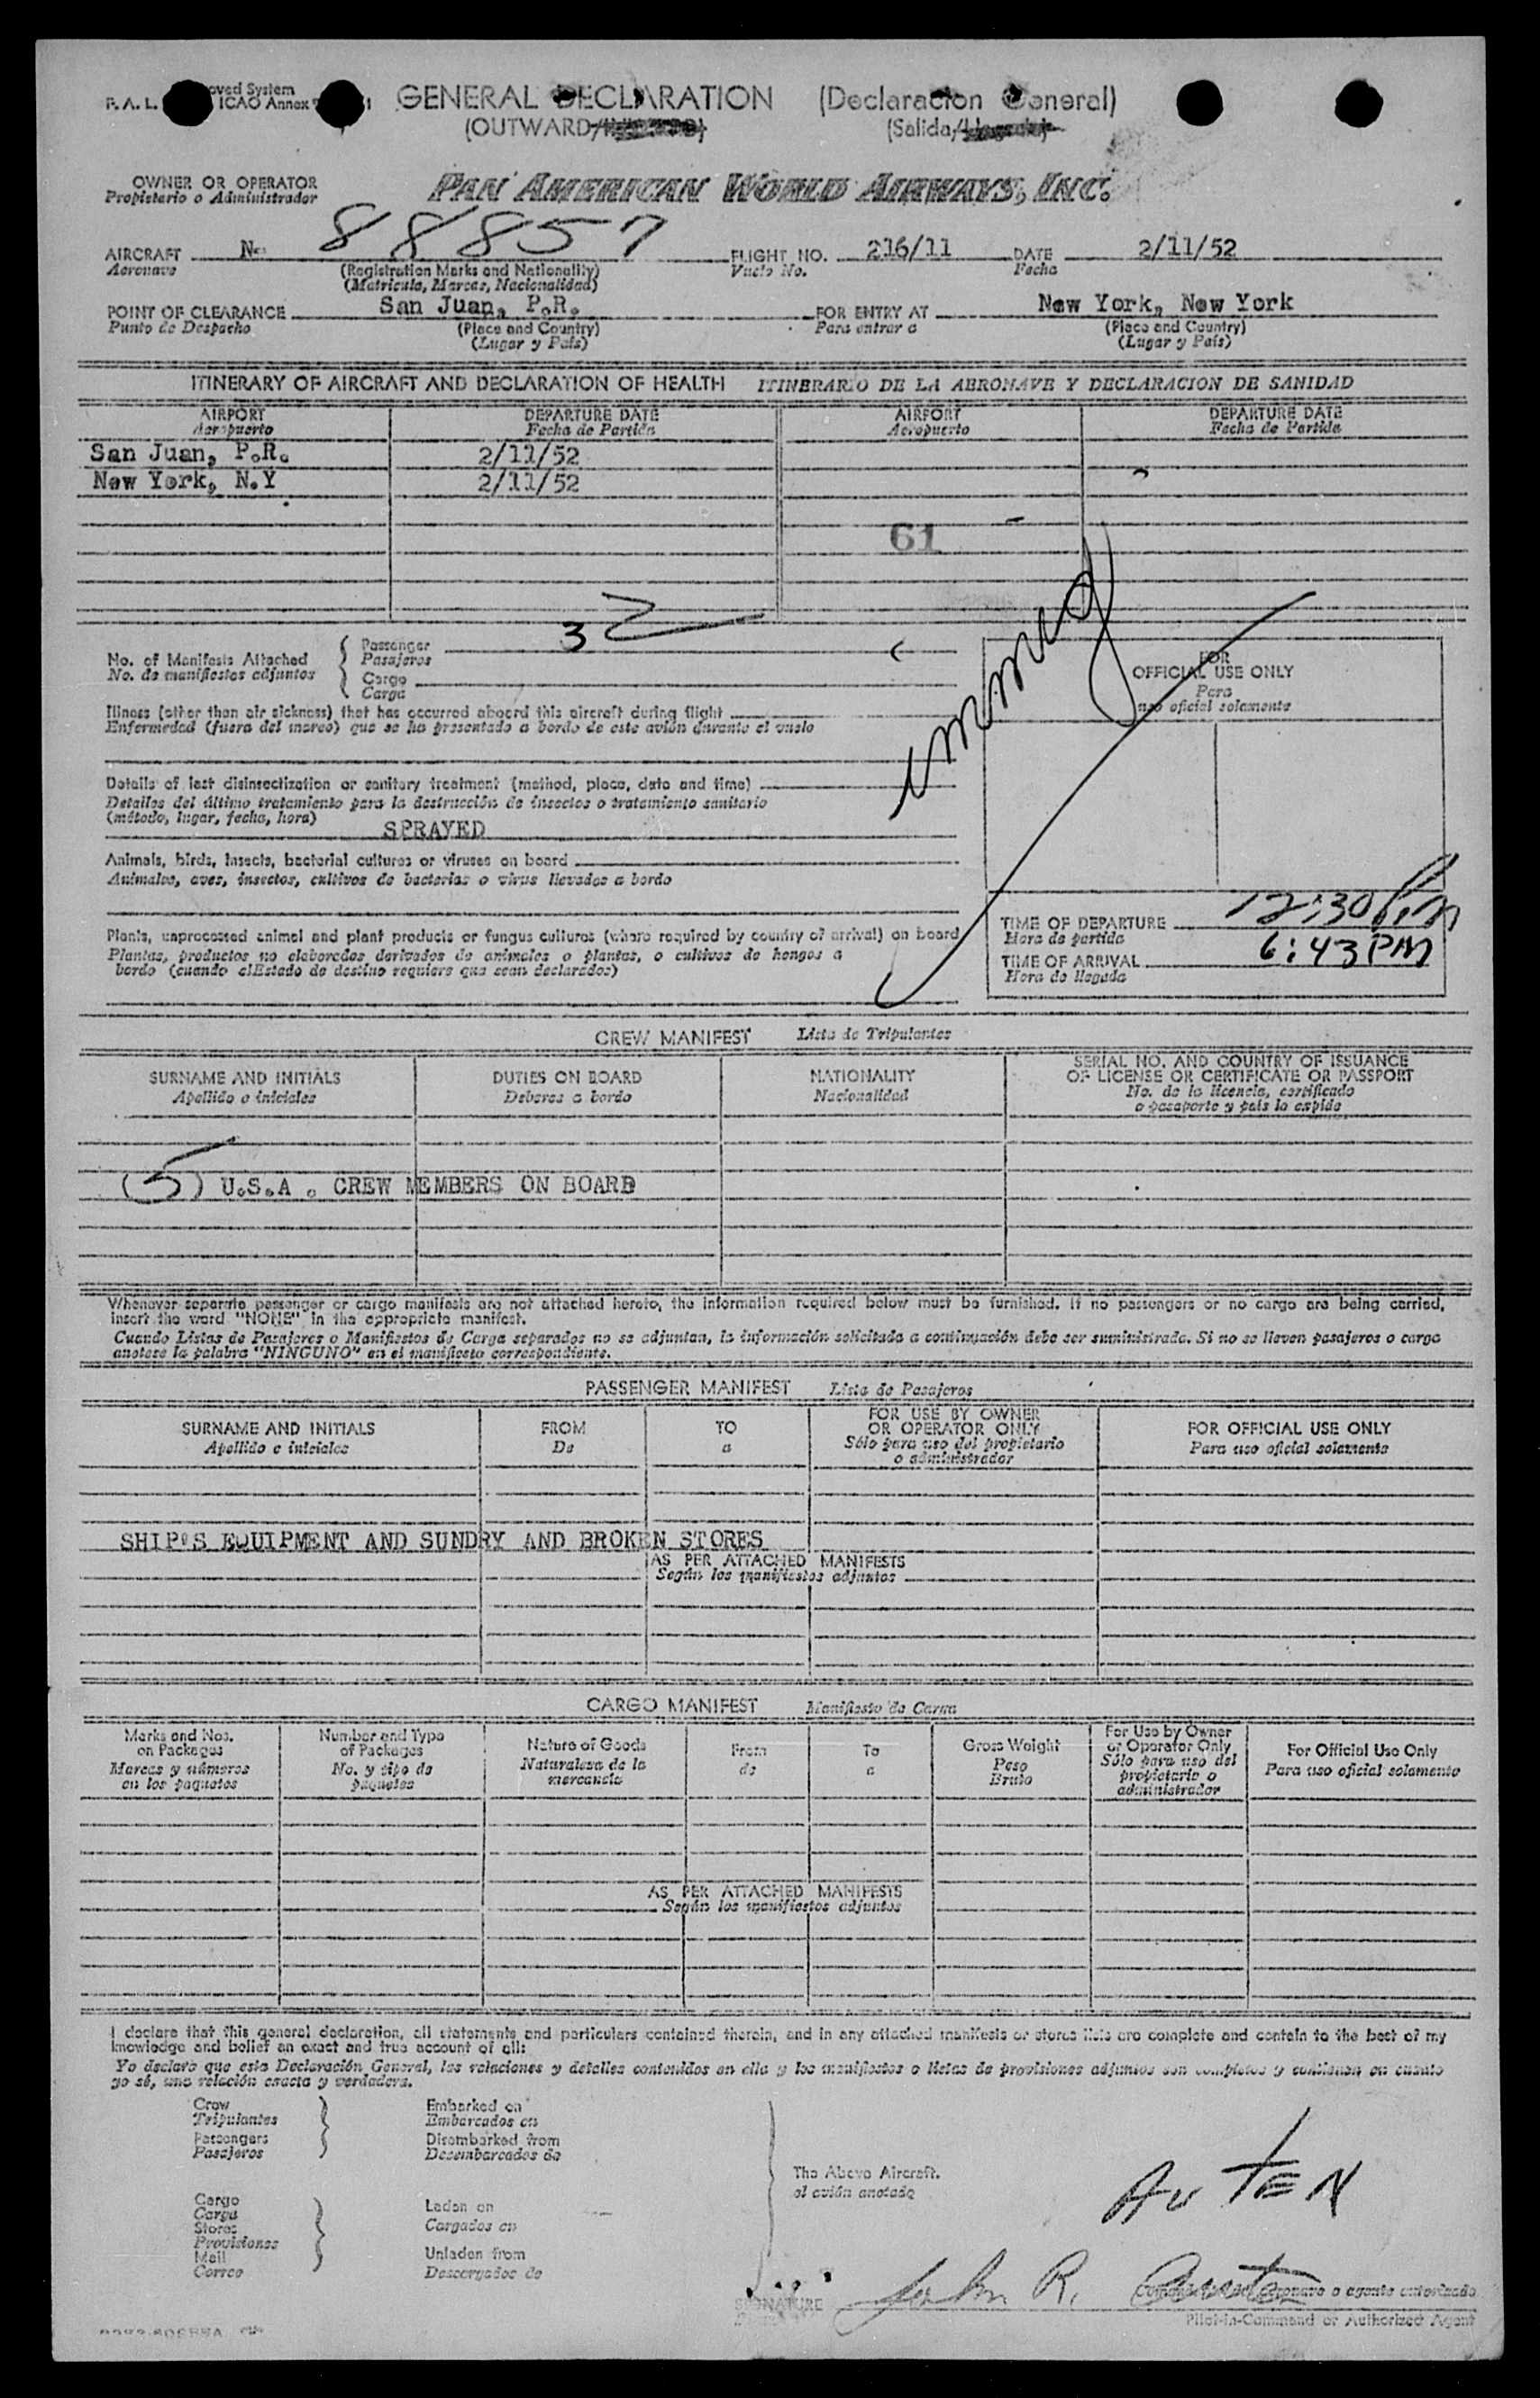 GENERAL DECLARATION (Declaración General)
(OUTWARD/ (Salida/
OWNER OR OPERATOR PAN AMERICAN WORLD AIRWAYS, INC.
Propietario o Administrador
AIRCRAFT N- 88857 FLIGHT NO. 216/11 DATE 2/11/52
Aeronave (Registration Marks and Nationality) Vuelo No. Fecha
(Matricula, Marcas, Nacionalidad)
POINT OF CLEARANCE San Juan, P.R. FOR ENTRY AT New York, New York
Punto de Despacho (Place and Country) Para entrar a (Place and Country)
(Lugar y País) (Lugar y País)
ITINERARY OF AIRCRAFT AND DECLARATION OF HEALTH ITINERARIO DE LA AERONAVE Y DECLARACION DE SANIDAD
AIRPORT DEPARTURE DATE AIRPORT DEPARTURE DATE
Aeropuerto Fecha de Partida Aeropuerto Fecha de Partida
San Juan, P.R. 2/11/52
New York, N.Y 2/11/52
61
immig
3
No. of Manifests Attached { Passenger
No. de manifiestos adjuntos Pasajeros
Cargo
Carga
FOR
OFFICIAL USE ONLY
Para
uso oficial solamente
Illness (other than air sickness) that has occurred aboard this aircraft during flight
Enfermedad (fuera del mareo) que se ha presentado a bordo de este avión durante el vuelo
Details of last disinsectization or sanitary treatment (method, place, date and time)
Detalles del último tratamiento para la destrucción de insectos o tratamiento sanitario
(método, lugar, fecha, hora)
SPRAYED
Animals, birds, insects, bacterial cultures or viruses on board
Animales, aves, insectos, cultivos de bacterias o virus llevados a bordo
TIME OF DEPARTURE 12:30 Pm
Hora de partida
TIME OF ARRIVAL 6:43 PM
Hora de llegada
Plants, unprocessed animal and plant products or fungus cultures (where required by country of arrival) on board
Plantas, productos no elaborados derivados de animales o plantas, o cultivos de hongos a
bordo (cuando el Estado de destino requiere que sean declarados)
CREW MANIFEST Lista de Tripulantes
SURNAME AND INITIALS DUTIES ON BOARD NATIONALITY SERIAL NO. AND COUNTRY OF ISSUANCE
OF LICENSE OR CERTIFICATE OR PASSPORT
Apellido e iniciales Deberes a bordo Nacionalidad No. de la licencia, certificado
o pasaporte y país lo expide
(5) U.S.A. CREW MEMBERS ON BOARD
Whenever separate passenger or cargo manifests are not attached hereto, the information required below must be furnished. If no passengers or no cargo are being carried,
insert the word "NONE" in the appropriate manifest.
Cuando Listas de Pasajeros o Manifiestos de Carga separados no se adjuntan, la información solicitada a continuación debe ser suministrada. Si no se llevan pasajeros o carga
anotese la palabra "NINGUNO" en el manifiesto correspondiente.
PASSENGER MANIFEST Lista de Pasajeros
SURNAME AND INITIALS FROM TO FOR USE BY OWNER FOR OFFICIAL USE ONLY
OR OPERATOR ONLY
Apellido e iniciales De a Sólo para uso del propietario Para uso oficial solamente
o administrador
SHIP'S EQUIPMENT AND SUNDRY AND BROKEN STORES
AS PER ATTACHED MANIFESTS
Según los manifiestos adjuntos
CARGO MANIFEST Manifiesto de Carga
Marks and Nos. Number and Type Nature of Goods From To Gross Weight For Use by Owner For Official Use Only
on Packages of Packages or Operator Only
Marcas y números No. y tipo de Naturaleza de la de a Peso Sólo para uso del Para uso oficial solamente
en los paquetes paquetes mercancía Bruto propietario o
administrador
AS PER ATTACHED MANIFESTS
Según los manifiestos adjuntos
I declare that this general declaration, all statements and particulars contained therein, and in any attached manifests or stores lists are complete and contain to the best of my
knowledge and belief an exact and true account of all:
Yo declaro que esta Declaración General, las relaciones y detalles contenidos en ella y los manifiestos o listas de provisiones adjuntos son completos y contienen en cuanto
yo sé, una relación exacta y verdadera.
Crew Embarked on
Tripulantes Embarcados en
Passengers Disembarked from
Pasajeros Desembarcados de
The Above Aircraft.
el avión anotado
Cargo
Carga Laden on
Stores Cargados en
Provisiones
Mail Unladen from
Correo Descargados de
AUTEN
SIGNATURE John R. Auten
Pilot-in-Command or Authorized Agent